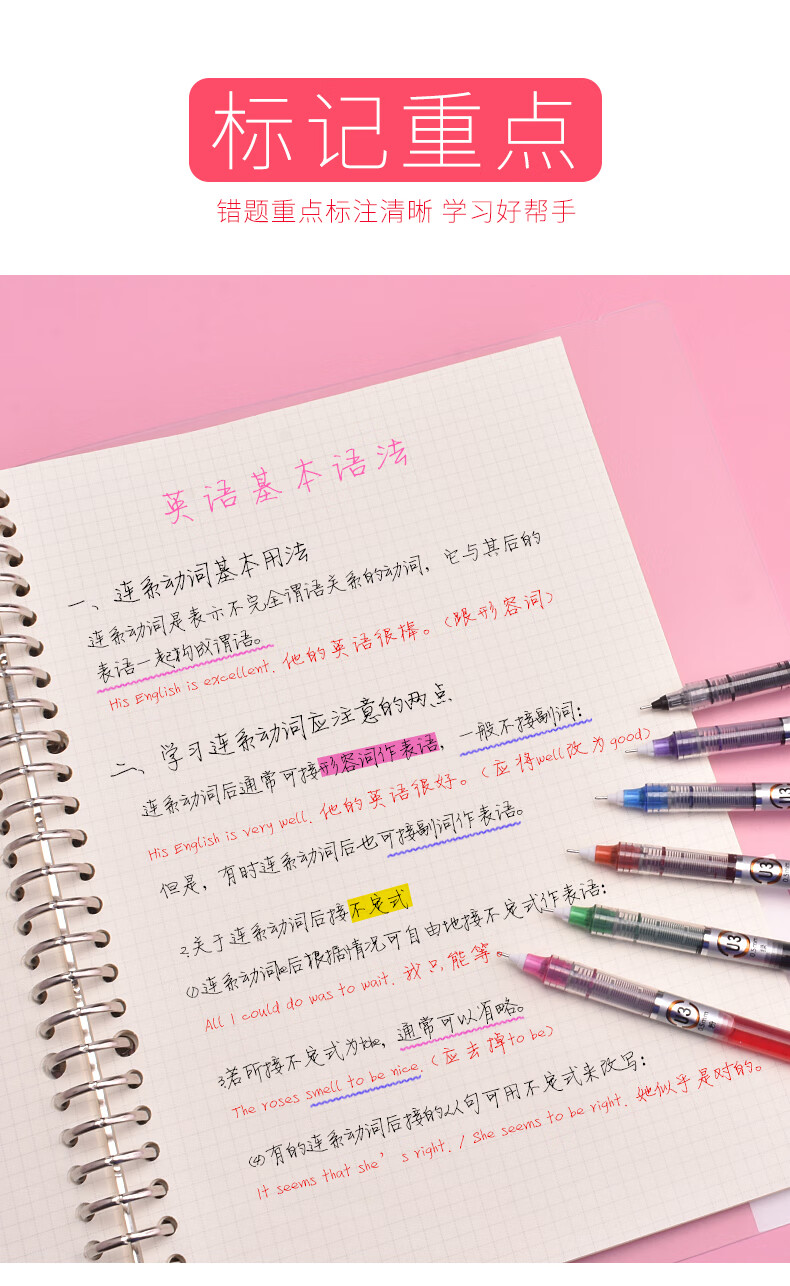 标记重点
错题重点标注清晰 学习好帮手
英语基本语法
一、连系动词基本用法
连系动词是表示不完全谓语关系的动词，它与其后的
表语一起构成谓语。
His English is excellent. 他的英语很棒。（跟形容词）
二、学习连系动词应注意的两点
连系动词后通常可接形容词作表语，一般不接副词：
His English is very well. 他的英语很好。（应将well改为good）
但是，有时连系动词后也可接副词作表语。
2.关于连系动词后接不定式
①连系动词后根据情况可自由地接不定式作表语：
All I could do was to wait. 我只能等。
3若所接不定式为to be，通常可以省略。
The roses smell to be nice.（应去掉to be）
(4)有的连系动词后接的从句可用不定式来改写：
It seems that she's right. / She seems to be right. 她似乎是对的。
U3
U3
U3
U3